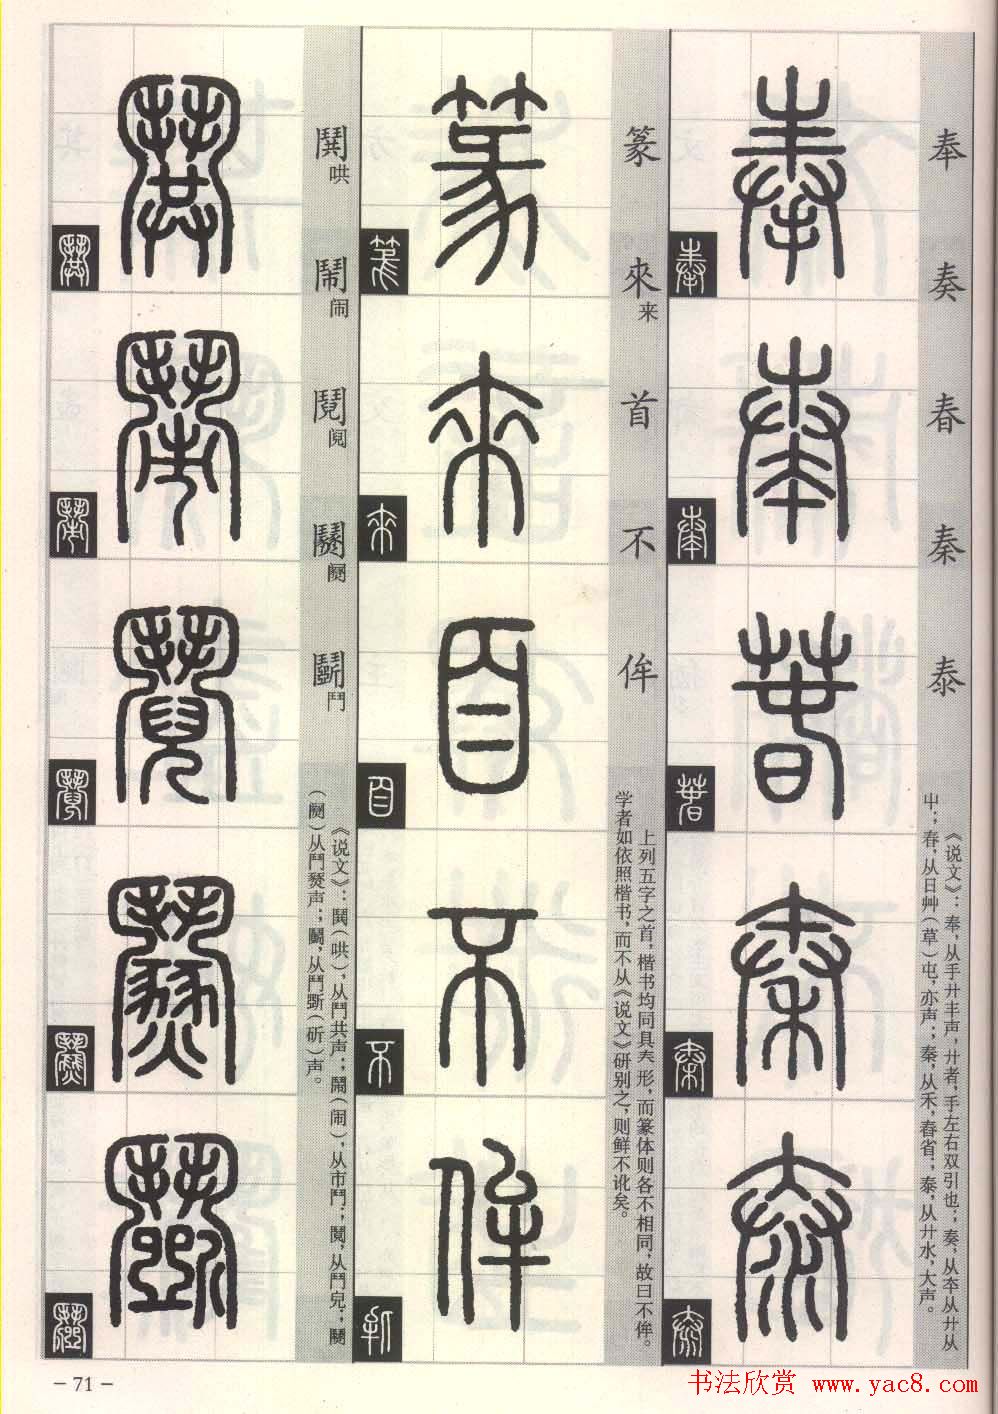 奉
奏
春
秦
泰
《说文》：奉，从手廾丰声，廾者，手左右双引也；奏，从夲从廾从
屮；春，从日艸（草）屯，亦声；秦，从禾，舂省；泰，从廾水，大声。
篆
來来
首
不
侔
上列五字之首，楷书均同具𡗗形，而篆体则各不相同，故曰不侔。
学者如依照楷书，而不从《说文》研别之，则鲜不讹矣。
鬨哄
鬧闹
鬩阋
鬮阄
鬭鬥
《说文》：鬨（哄），从鬥共声；鬧（闹），从市鬥；鬩，从鬥兒；
声；鬭，从鬥斲（斫）声。
－71－
书法欣赏 www.yac8.com